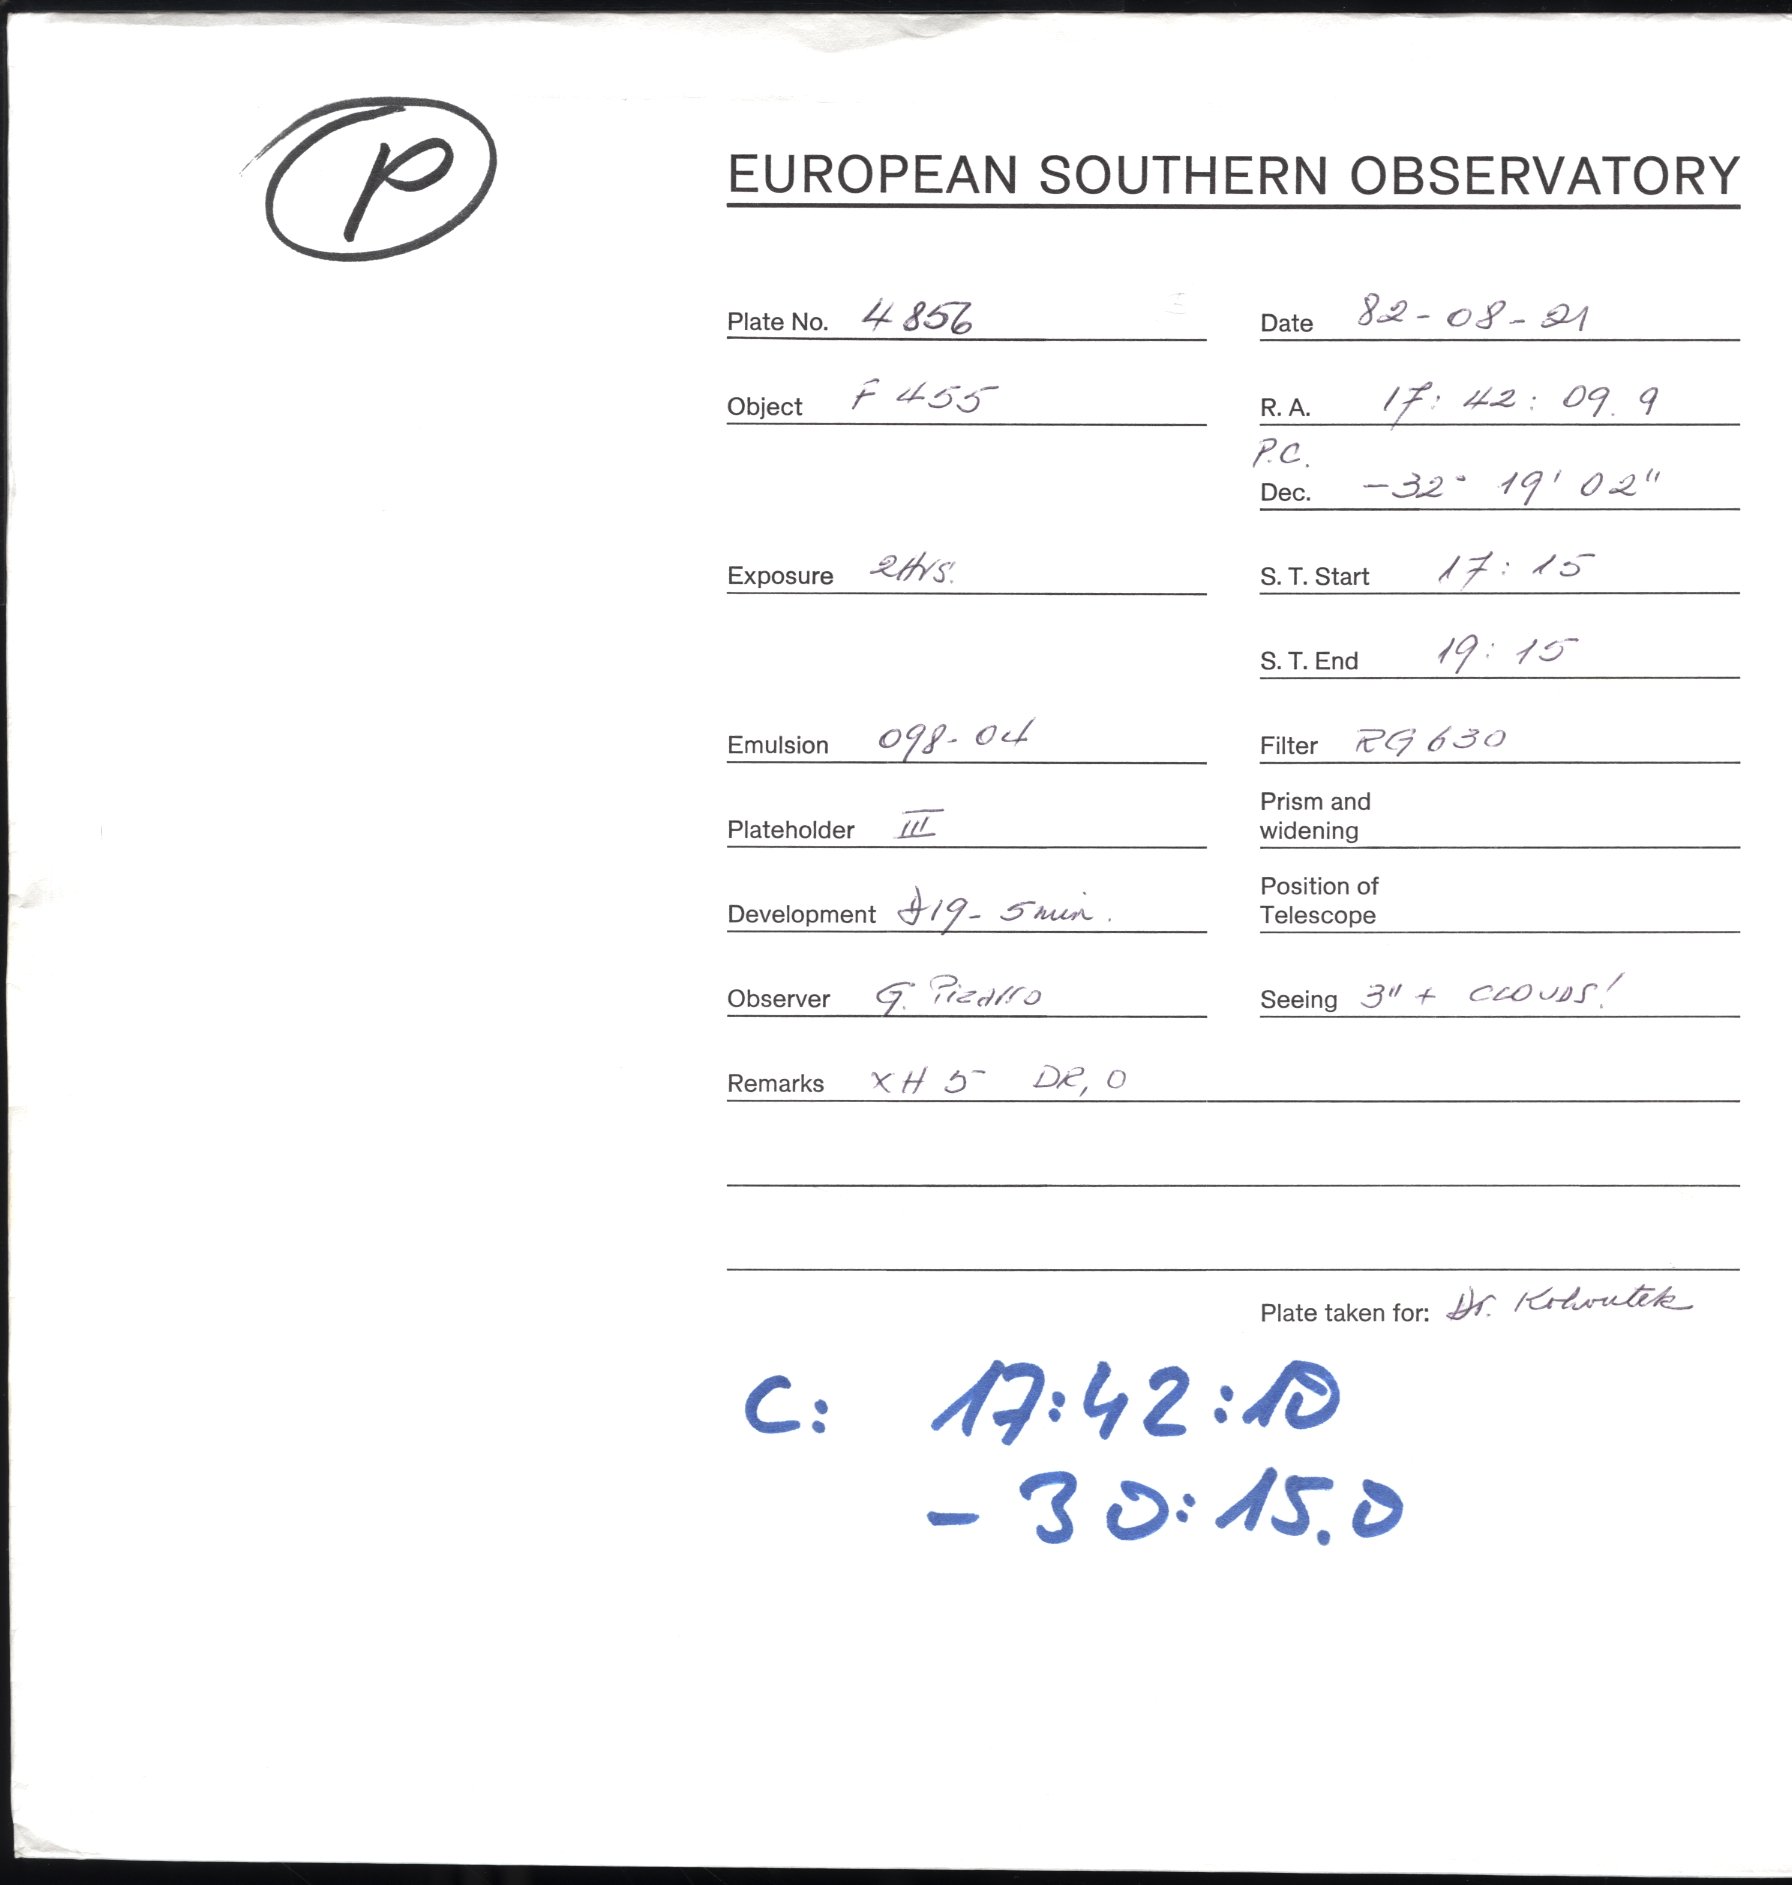 P
EUROPEAN SOUTHERN OBSERVATORY
Plate No. 4856
Date 82-08-21
Object F 455
R. A. 17: 42: 09. 9
P.C.
Dec. -32° 19' 02"
Exposure 2Hrs.
S. T. Start 17: 15
S. T. End 19: 15
Emulsion 098-04
Filter RG 630
Plateholder III
Prism and
widening
Development D19- 5 min.
Position of
Telescope
Observer G. Pizarro
Seeing 3" + CLOUDS!
Remarks XH 5 DR, 0
Plate taken for: Dr. Kohoutek
C: 17:42:10
- 30:15.0